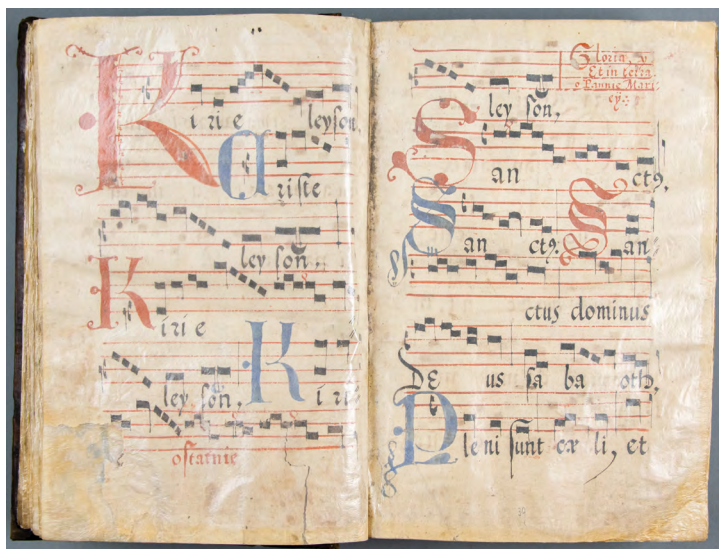 Kirie leyson,
Xriste
leyson,
Kirie
leyson, Kirie
ostatnie
ley son,
Gloria, y
Et in terra
o Pannie Mari
ey:
San ctꝰ,
San ctꝰ San
ctus dominus
DE us sa ba oth,
Pleni sunt cæ li, et
39